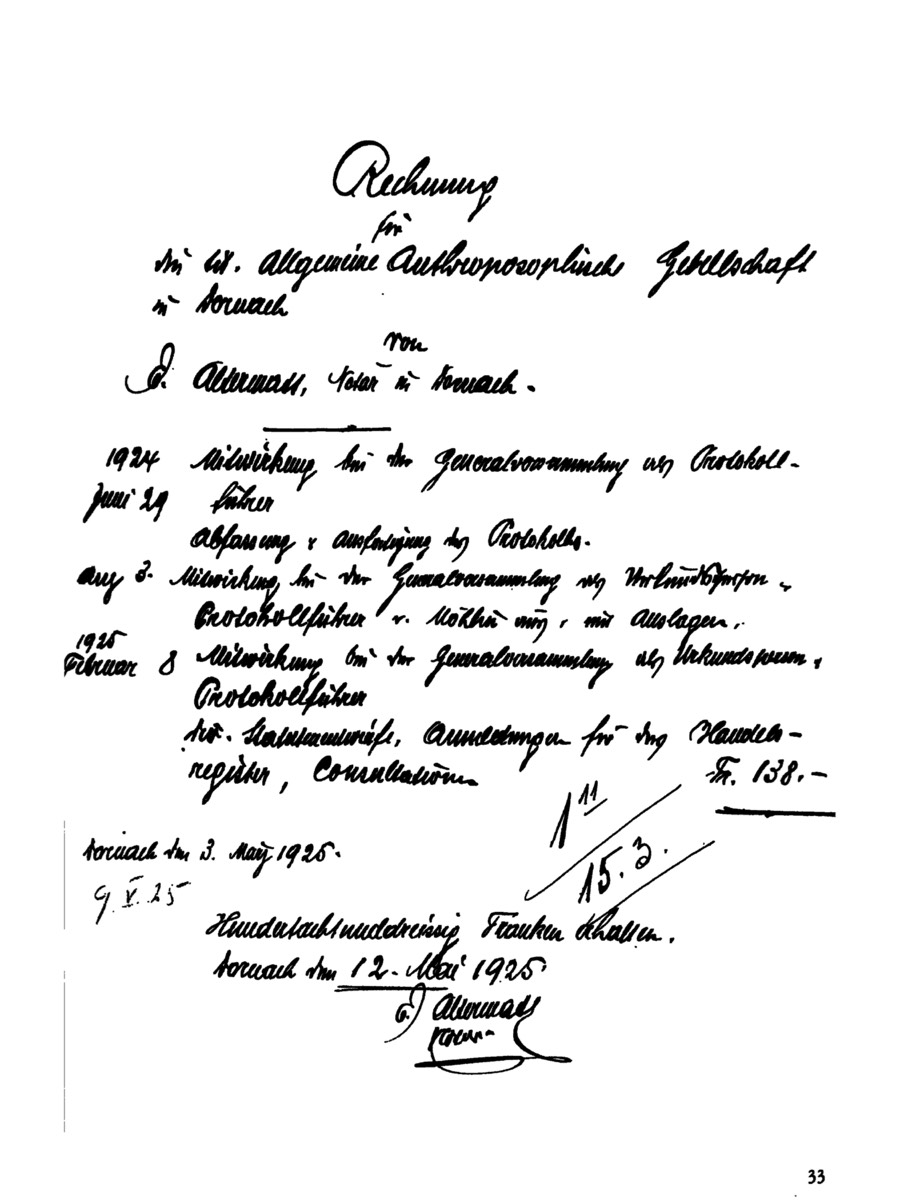 Rechnung
für
die tit. Allgemeine Anthroposophische Gesellschaft
in Dornach
von
E. Altermatt, Notar in Dornach.
1924 Mitwirkung bei der Generalversammlung als Protokoll-
Juni 29 führer
Abfassung & Ausfertigung des Protokolls.
Aug 3. Mitwirkung bei der Generalversammlung als Urkundsperson &
Protokollführer mit Auslagen.
1925
Februar 8 Mitwirkung bei der Generalversammlung als Urkundsperson &
Protokollführer
Statutenentwürfe, Anmeldungen für das Handels-
register, Consultationen Fr. 138.-
1 11
15.3.
Dornach den 3. März 1925.
9.V.25
Hundertachtunddreissig Franken erhalten.
Dornach den 12. Mai 1925
E. Altermatt
Notar
33